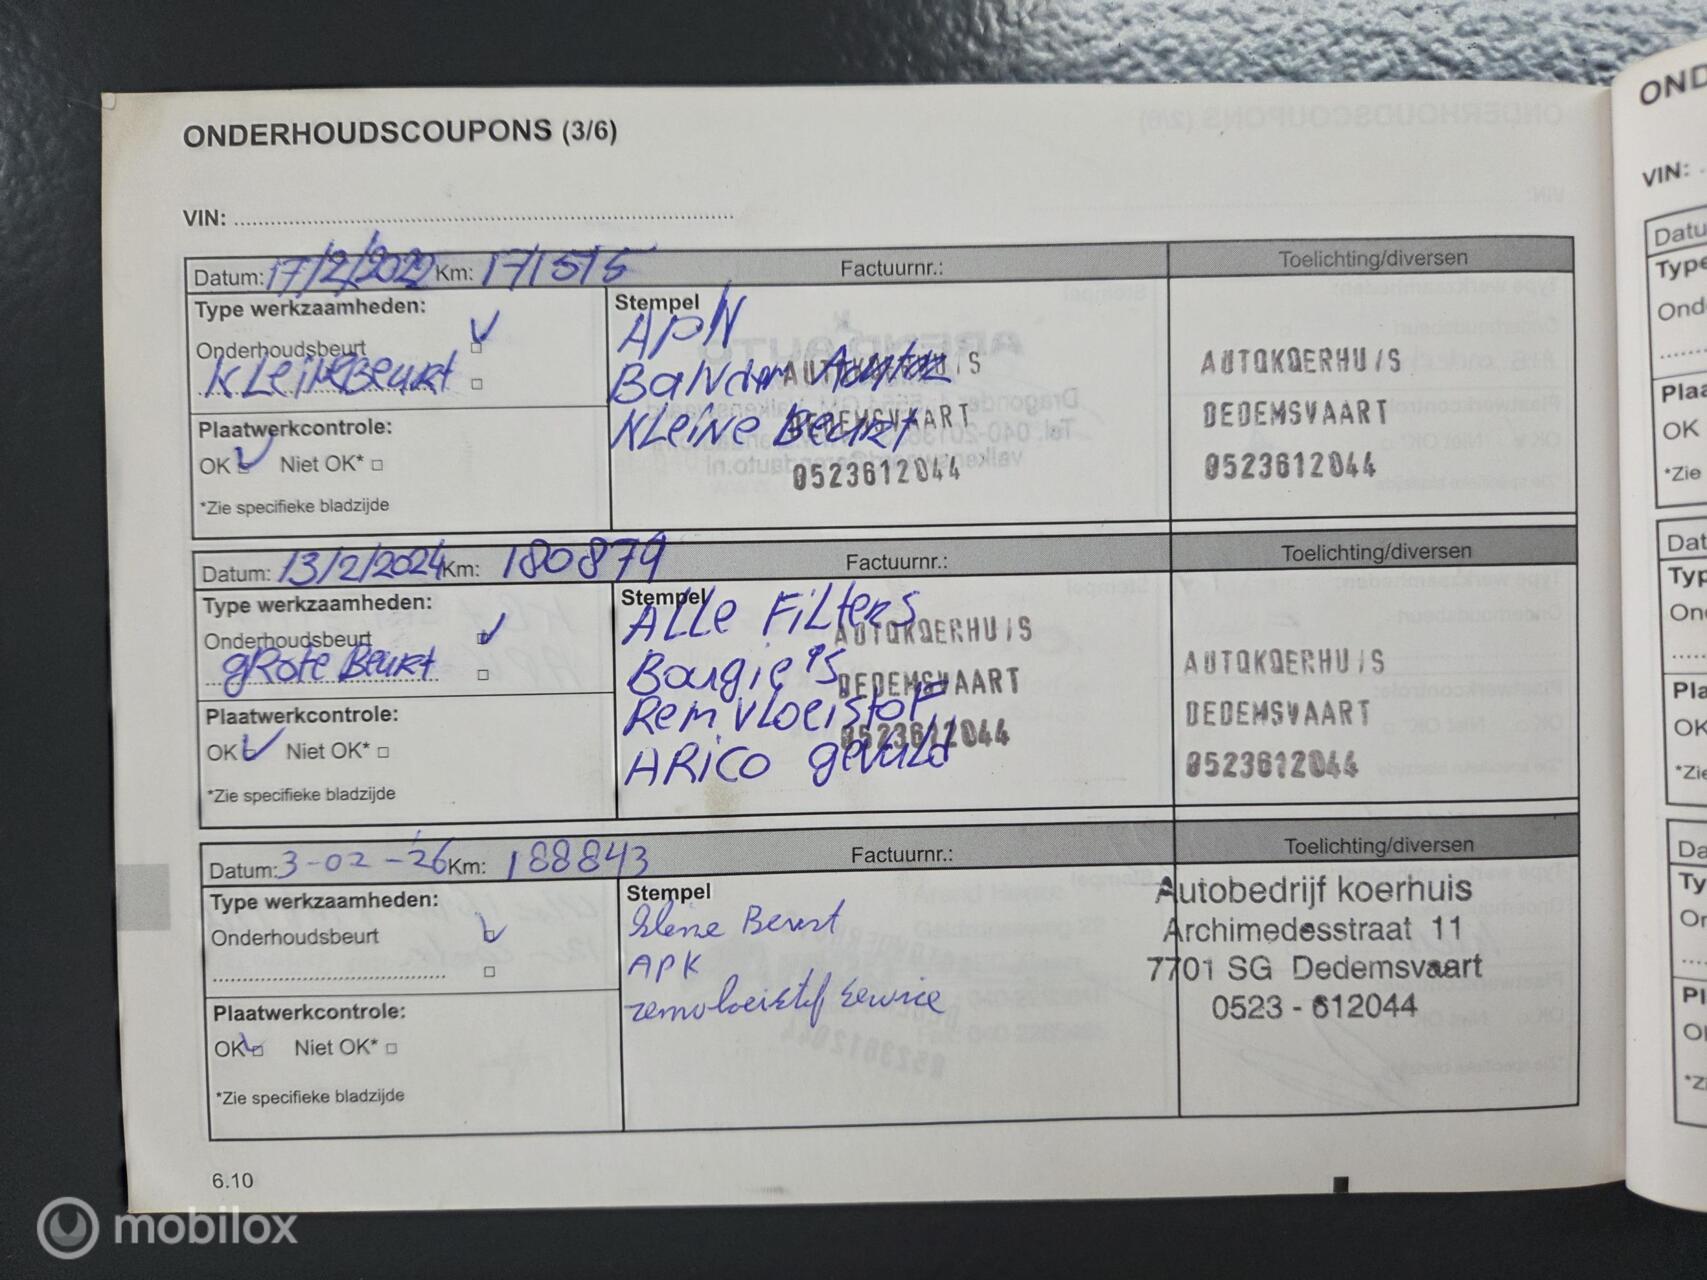 ONDERHOUDSCOUPONS (3/6)
VIN:
Datum: 17/2/2022 Km: 171515 Factuurnr.: Toelichting/diversen
Type werkzaamheden:
Onderhoudsbeurt
KLeine Beurt
Plaatwerkcontrole:
OK Niet OK*
*Zie specifieke bladzijde
Stempel
APK
KLeine Beurt
AUTOKOERHUIS
DEDEMSVAART
0523612044
AUTOKOERHUIS
DEDEMSVAART
0523612044
Datum: 13/2/2024 Km: 180879 Factuurnr.: Toelichting/diversen
Type werkzaamheden:
Onderhoudsbeurt
gRote Beurt
Plaatwerkcontrole:
OK Niet OK*
*Zie specifieke bladzijde
Stempel
ALLe FiLteRs
Bougie's
Remvloeistof
ARiCO gevuld
AUTOKOERHUIS
DEDEMSVAART
0523612044
AUTOKOERHUIS
DEDEMSVAART
0523612044
Datum: 3-02-'26 Km: 188843 Factuurnr.: Toelichting/diversen
Type werkzaamheden:
Onderhoudsbeurt
Plaatwerkcontrole:
OK Niet OK*
*Zie specifieke bladzijde
Stempel
Kleine Beurt
APK
remvloeistof service
Autobedrijf koerhuis
Archimedesstraat 11
7701 SG Dedemsvaart
0523 - 612044
6.10
OND
VIN:
mobilox